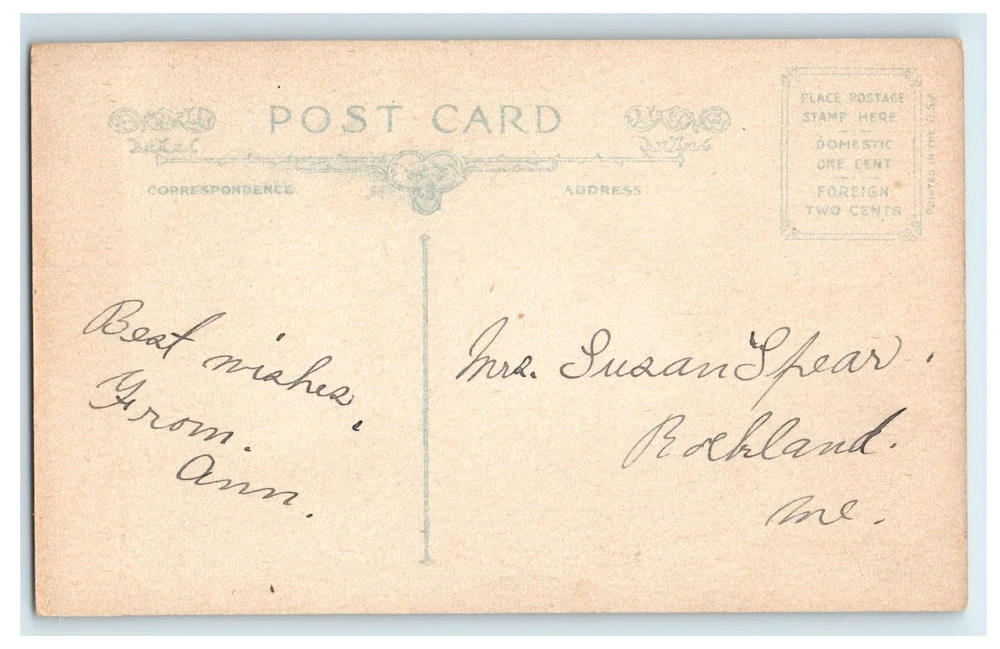 POST CARD
CORRESPONDENCE
ADDRESS
PLACE POSTAGE
STAMP HERE
DOMESTIC
ONE CENT
FOREIGN
TWO CENTS
PRINTED IN THE U.S.A
Best wishes,
From.
Ann.
Mrs. Susan Spear.
Rockland.
Me.